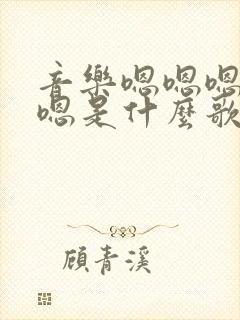 音樂嗯嗯嗯
嗯是什麼歌
顧青溪